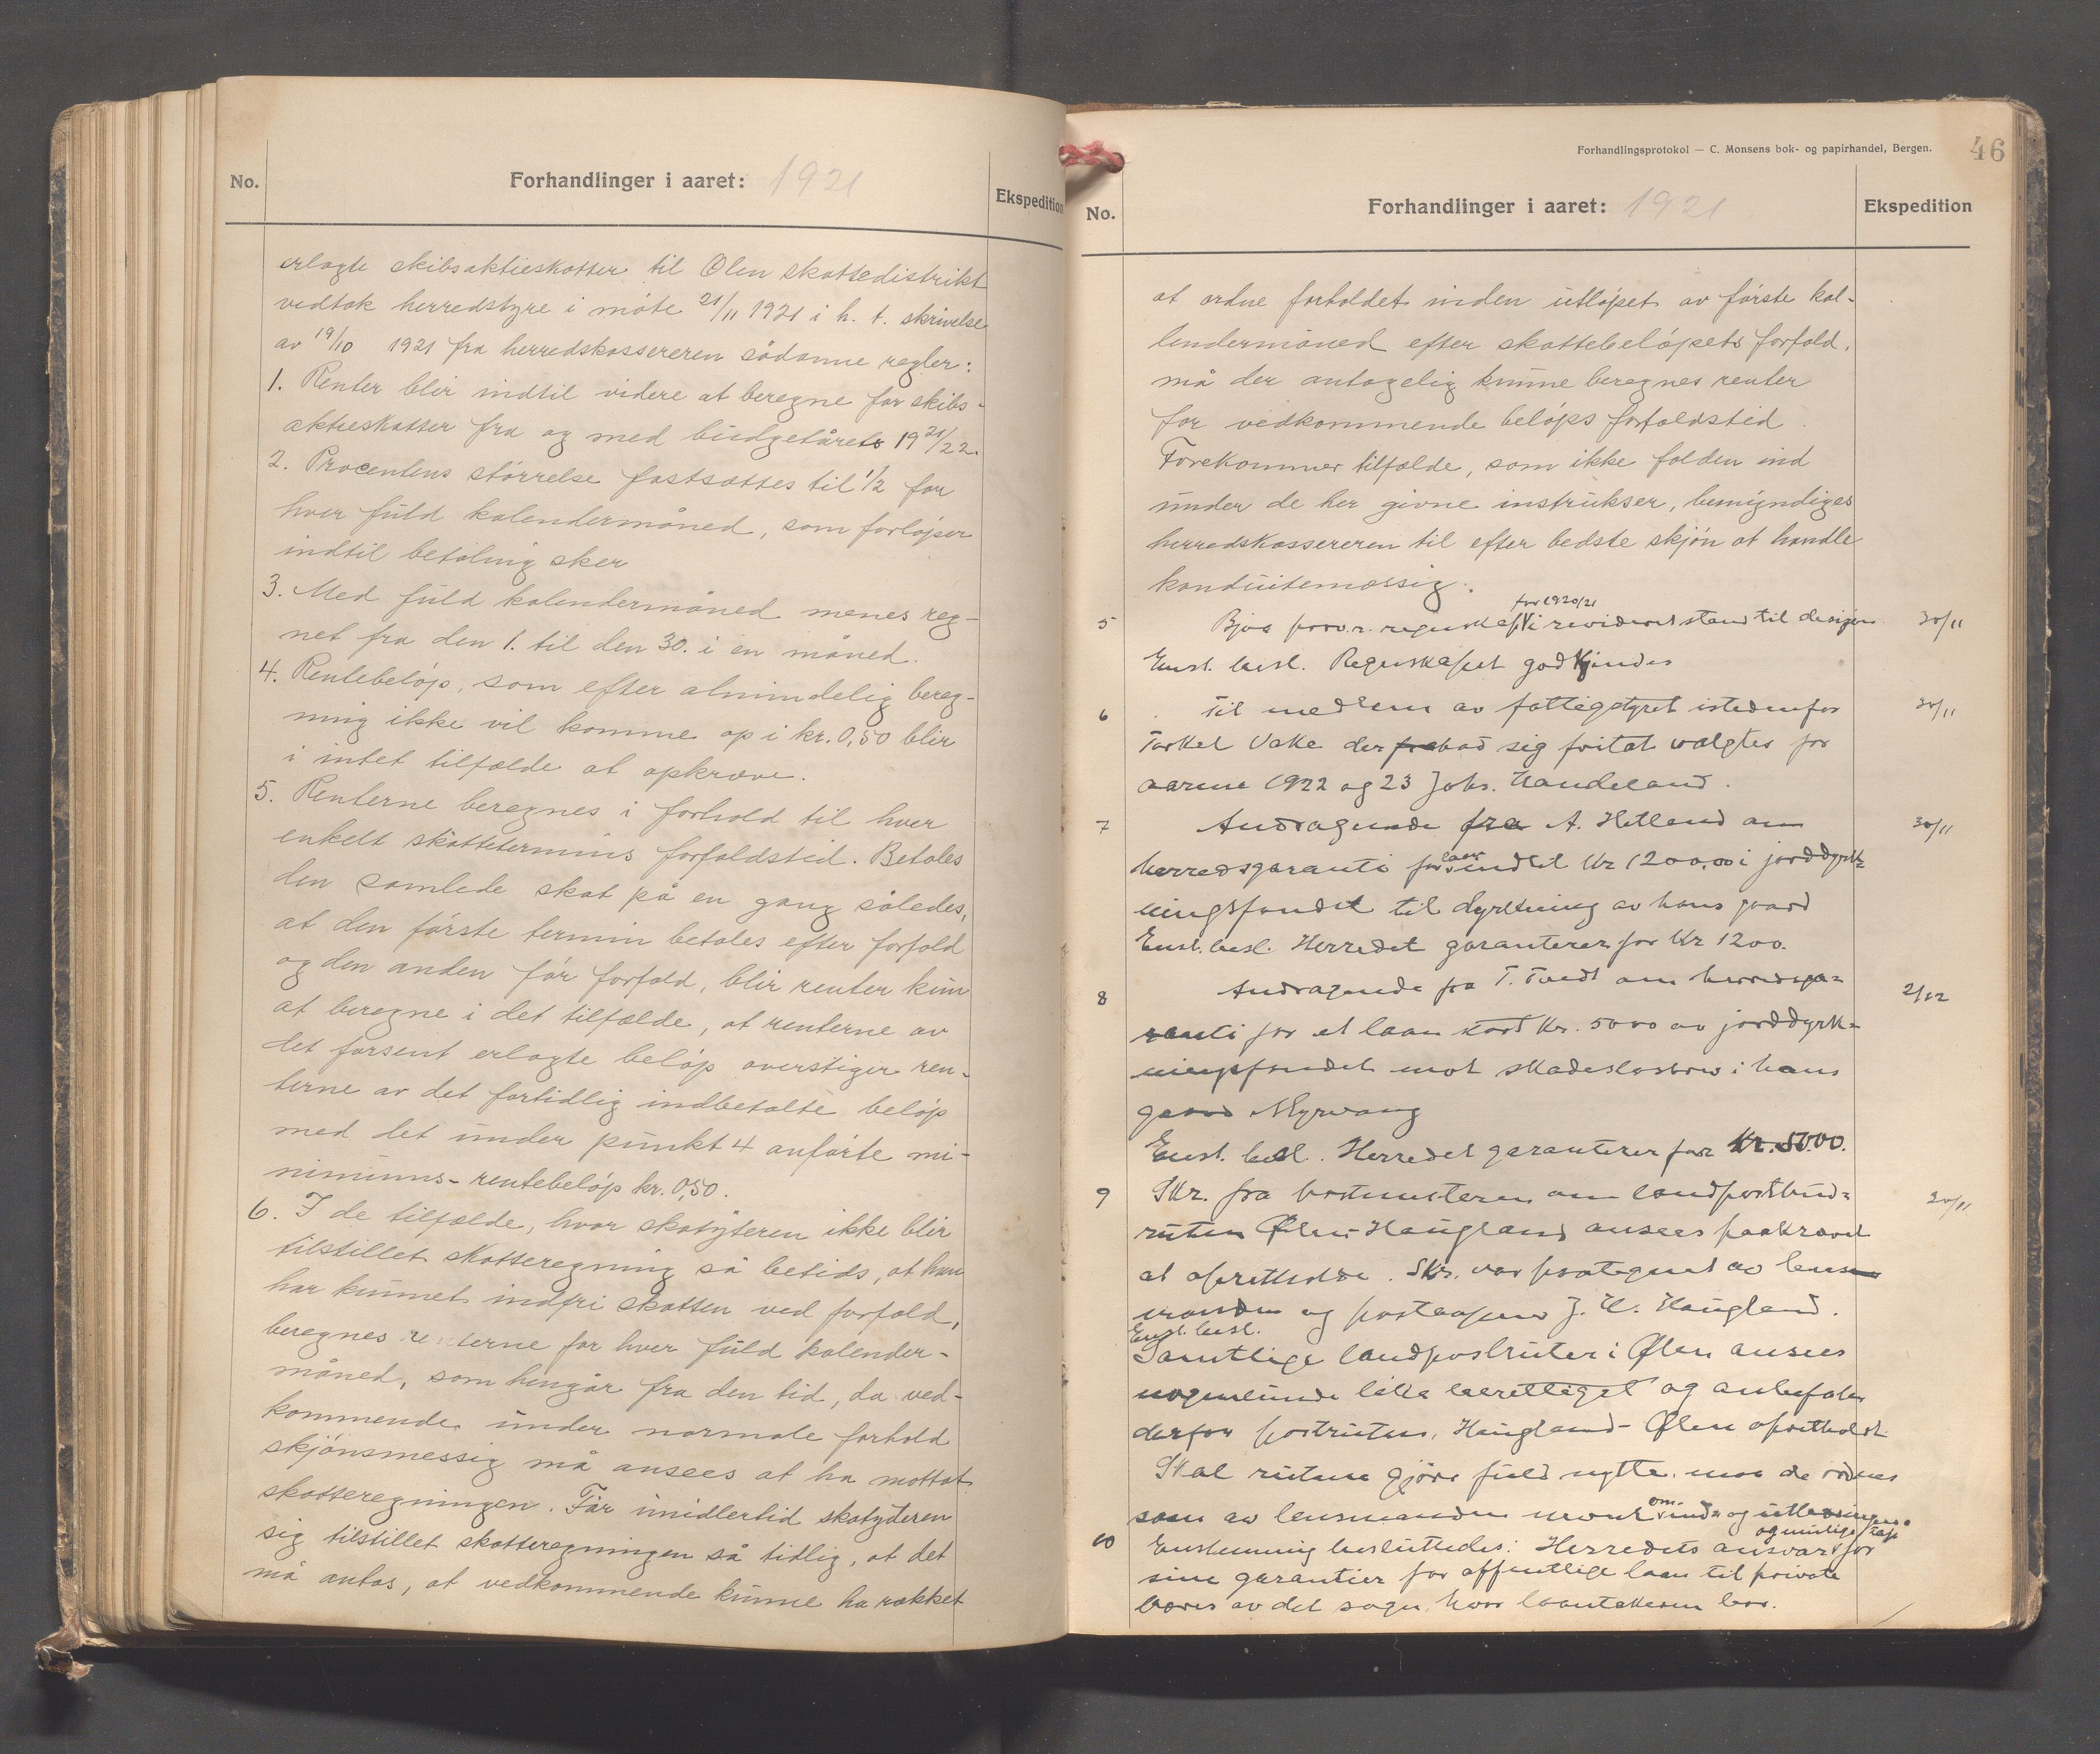 No.
Forhandlinger i aaret: 1921
Ekspedition
erlagte skibsaktieskatter til Ølen skattedistrikt
vedtok herredstyre i møte 21/11 1921 i h. t. skrivelse
av 19/10 1921 fra herredskassereren sådanne regler:
1. Renter blir indtil videre at beregne for skibs-
aktieskatter fra og med budgetårets 1921/22.
2. Procentens størrelse fastsættes til 1/2 for
hver fuld kalendermåned, som forløper
indtil betaling sker
3. Med fuld kalendermåned menes reg-
net fra den 1. til den 30. i en måned.
4. Rentebeløp, som efter almindelig bereg-
ning ikke vil komme op i kr. 0,50 blir
i intet tilfælde at opkræve.
5. Renterne beregnes i forhold til hver
enkelt skattetermins forfaldstid. Betales
den samlede skat på en gang således,
at den første termin betales efter forfald
og den anden før forfald, blir renter kun
at beregne i det tilfælde, at renterne av
det forsent erlagte beløp overstiger ren-
terne av det fortidlig indbetalte beløp
med det under punkt 4 anførte mi-
nimums-rentebeløp kr. 0,50.
6. I de tilfælde, hvor skatyteren ikke blir
tilstillet skatteregning så betids, at han
har kunnet indfri skatten ved forfald,
beregnes renterne for hver fuld kalender-
måned, som hengår fra den tid, da ved-
kommende under normale forhold
skjønsmessig må ansees at ha mottat
skatteregningen. Får imidlertid skatyderen
sig tilstillet skatteregningen så tidlig, at det
må antas, at vedkommende kunne ha rækket
Forhandlingsprotokol — C. Monsens bok- og papirhandel, Bergen.
46
No.
Forhandlinger i aaret: 1921
Ekspedition
at ordne forholdet inden utløpet av første kal-
lendermåned efter skattebeløpets forfald,
må der antagelig kunne beregnes renter
for vedkommende beløps forfaldstid.
Forekommer tilfælde, som ikke falden ind
under de her givne instrukser, bemyndiges
herredskassereren til efter bedste skjøn at handle
konduitemæssig.
for 1920/21
5 Bjoa prov.r. regnskap i revideret stand til desisjon 30/11
Enst. besl. Regnskapet godkjendes
6 Til medlem av fattigstyret istedenfor 30/11
Torkel Vake der frabad sig fritat valgtes for
aarene 1922 og 23 Johs. Handeland.
7 Andragende fra A. Hetland om 30/11
herredsgaranti for laan indtil Kr 1200,00 i jorddyrk-
ningsfondet til dyrkning av hans gaard
Enst. besl. Herredet garanterer for Kr 1200.
8 Andragende fra T. Tvedt om herredsga- 2/12
ranti for et laan stort Kr. 5000 av jorddyrk-
ningsfondet mot skadesløsbrev i hans
gaard Myrvang
Enst. besl. Herredet garanterer for Kr. 5000.
9 Skr. fra postmesteren om landpostbud- 30/11
ruten Ølen-Haugland ansees paakrævet
at opretholde. Skr. var paategnet av lens-
manden og postaapner J. H. Haugland.
Enst. besl.
Samtlige landpostruter i Ølen ansees
nogenlunde like berettiget og anbefaler
derfor postruten, Haugland-Ølen opretholdt.
Skal rutene gjøre fuld nytte maa de ordnes
som av lensmanden nævnt om ind- og utleveringen.
10 Enstemmig besluttedes: Herredets ansvar og mulige tap for
sine garantier for offentlige laan til private
bæres av det sogn hvor laantakeren bor.